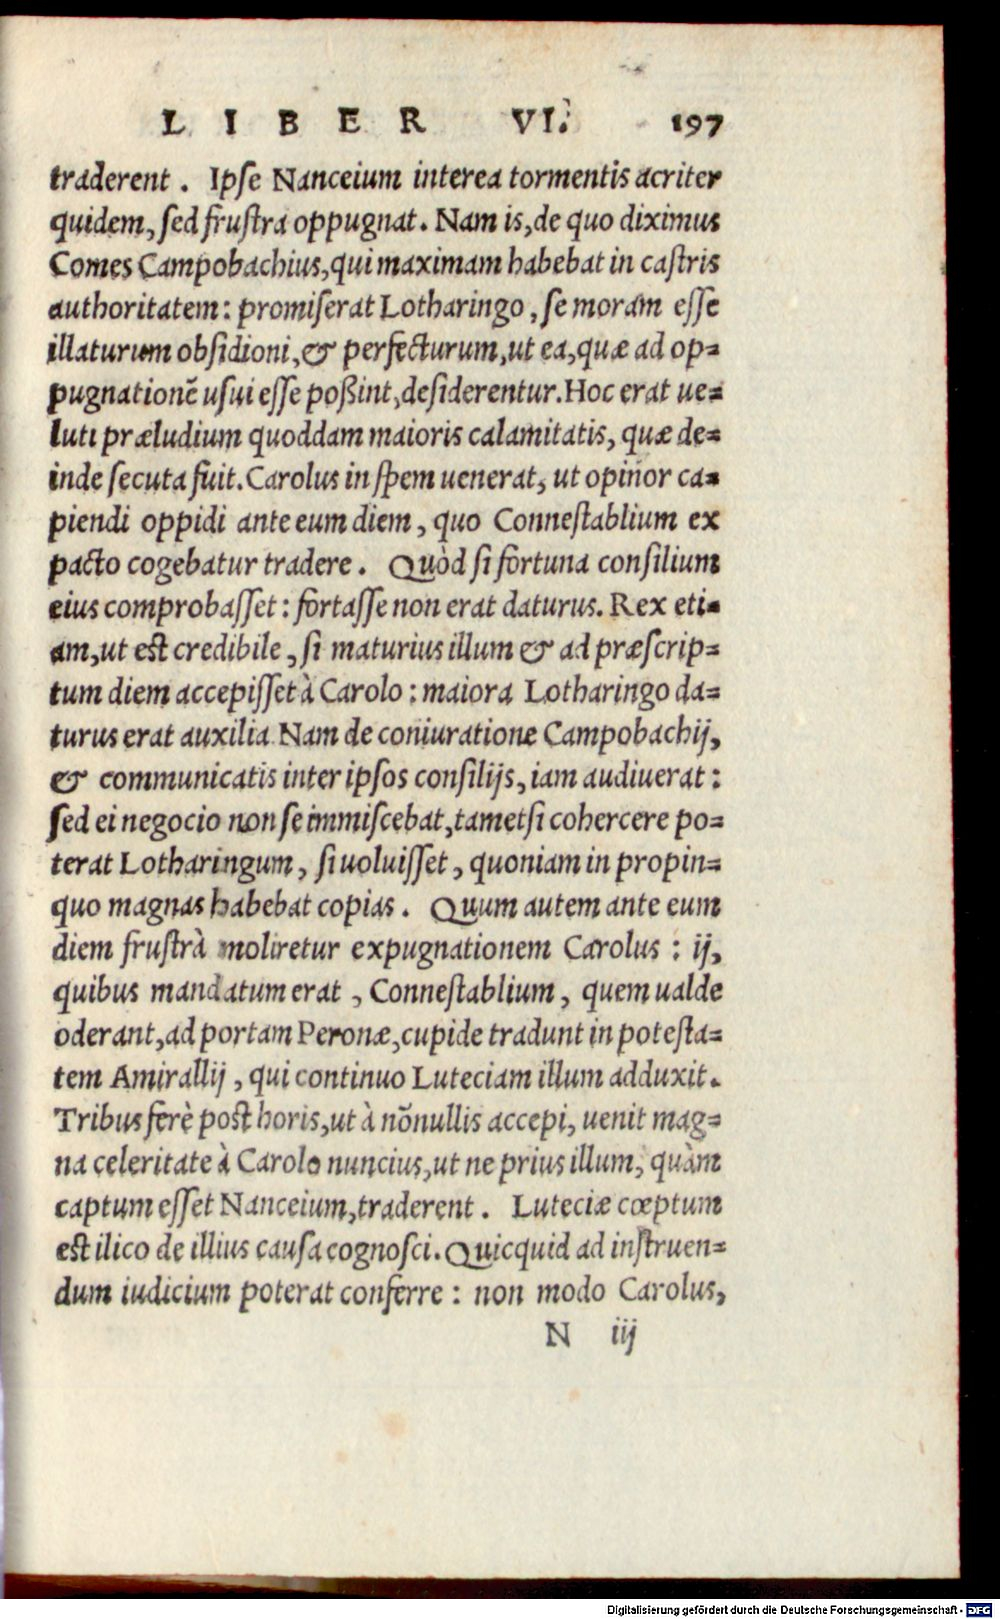 LIBER VI. 197
traderent. Ipſe Nanceium interea tormentis acriter
quidem, ſed fruſtra oppugnat. Nam is, de quo diximus
Comes Campobachius, qui maximam habebat in caſtris
authoritatem: promiſerat Lotharingo, ſe moram eſſe
illaturum obſidioni, & perfecturum, ut ea, quæ ad op=
pugnationē uſui eſſe poßint, deſiderentur. Hoc erat ue=
luti præludium quoddam maioris calamitatis, quæ de=
inde ſecuta fuit. Carolus in ſpem uenerat, ut opinor ca=
piendi oppidi ante eum diem, quo Conneſtablium ex
pacto cogebatur tradere. Quòd ſi fortuna conſilium
eius comprobaſſet: fortaſſe non erat daturus. Rex eti=
am, ut est credibile, ſi maturius illum & ad præſcrip=
tum diem accepiſſet à Carolo: maiora Lotharingo da=
turus erat auxilia Nam de coniuratione Campobachij,
& communicatis inter ipſos conſilijs, iam audiuerat:
ſed ei negocio non ſe immiſcebat, tametſi cohercere po=
terat Lotharingum, ſi uoluiſſet, quoniam in propin=
quo magnas habebat copias. Quum autem ante eum
diem fruſtrà moliretur expugnationem Carolus: ij,
quibus mandatum erat, Conneſtablium, quem ualde
oderant, ad portam Peronæ, cupide tradunt in poteſta=
tem Amirallij, qui continuo Luteciam illum adduxit.
Tribus ferè post horis, ut à nōnullis accepi, uenit mag=
na celeritate à Carolo nuncius, ut ne prius illum, quàm
captum eſſet Nanceium, traderent. Luteciæ cœptum
est ilico de illius cauſa cognoſci. Quicquid ad inſtruen=
dum iudicium poterat conferre: non modo Carolus,
N iij
Digitalisierung gefördert durch die Deutsche Forschungsgemeinschaft - DFG